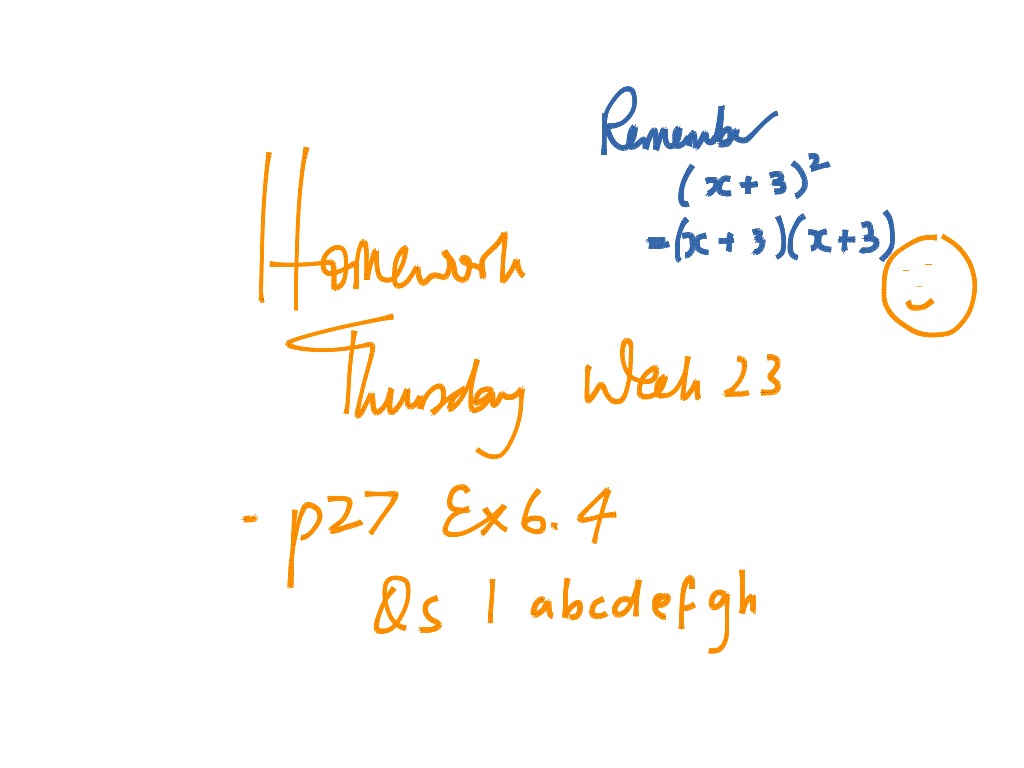 Remember
(x + 3)²
= (x + 3)(x + 3)
Homework
Thursday Week 23
- p27 Ex 6.4
Qs 1 abcdefgh